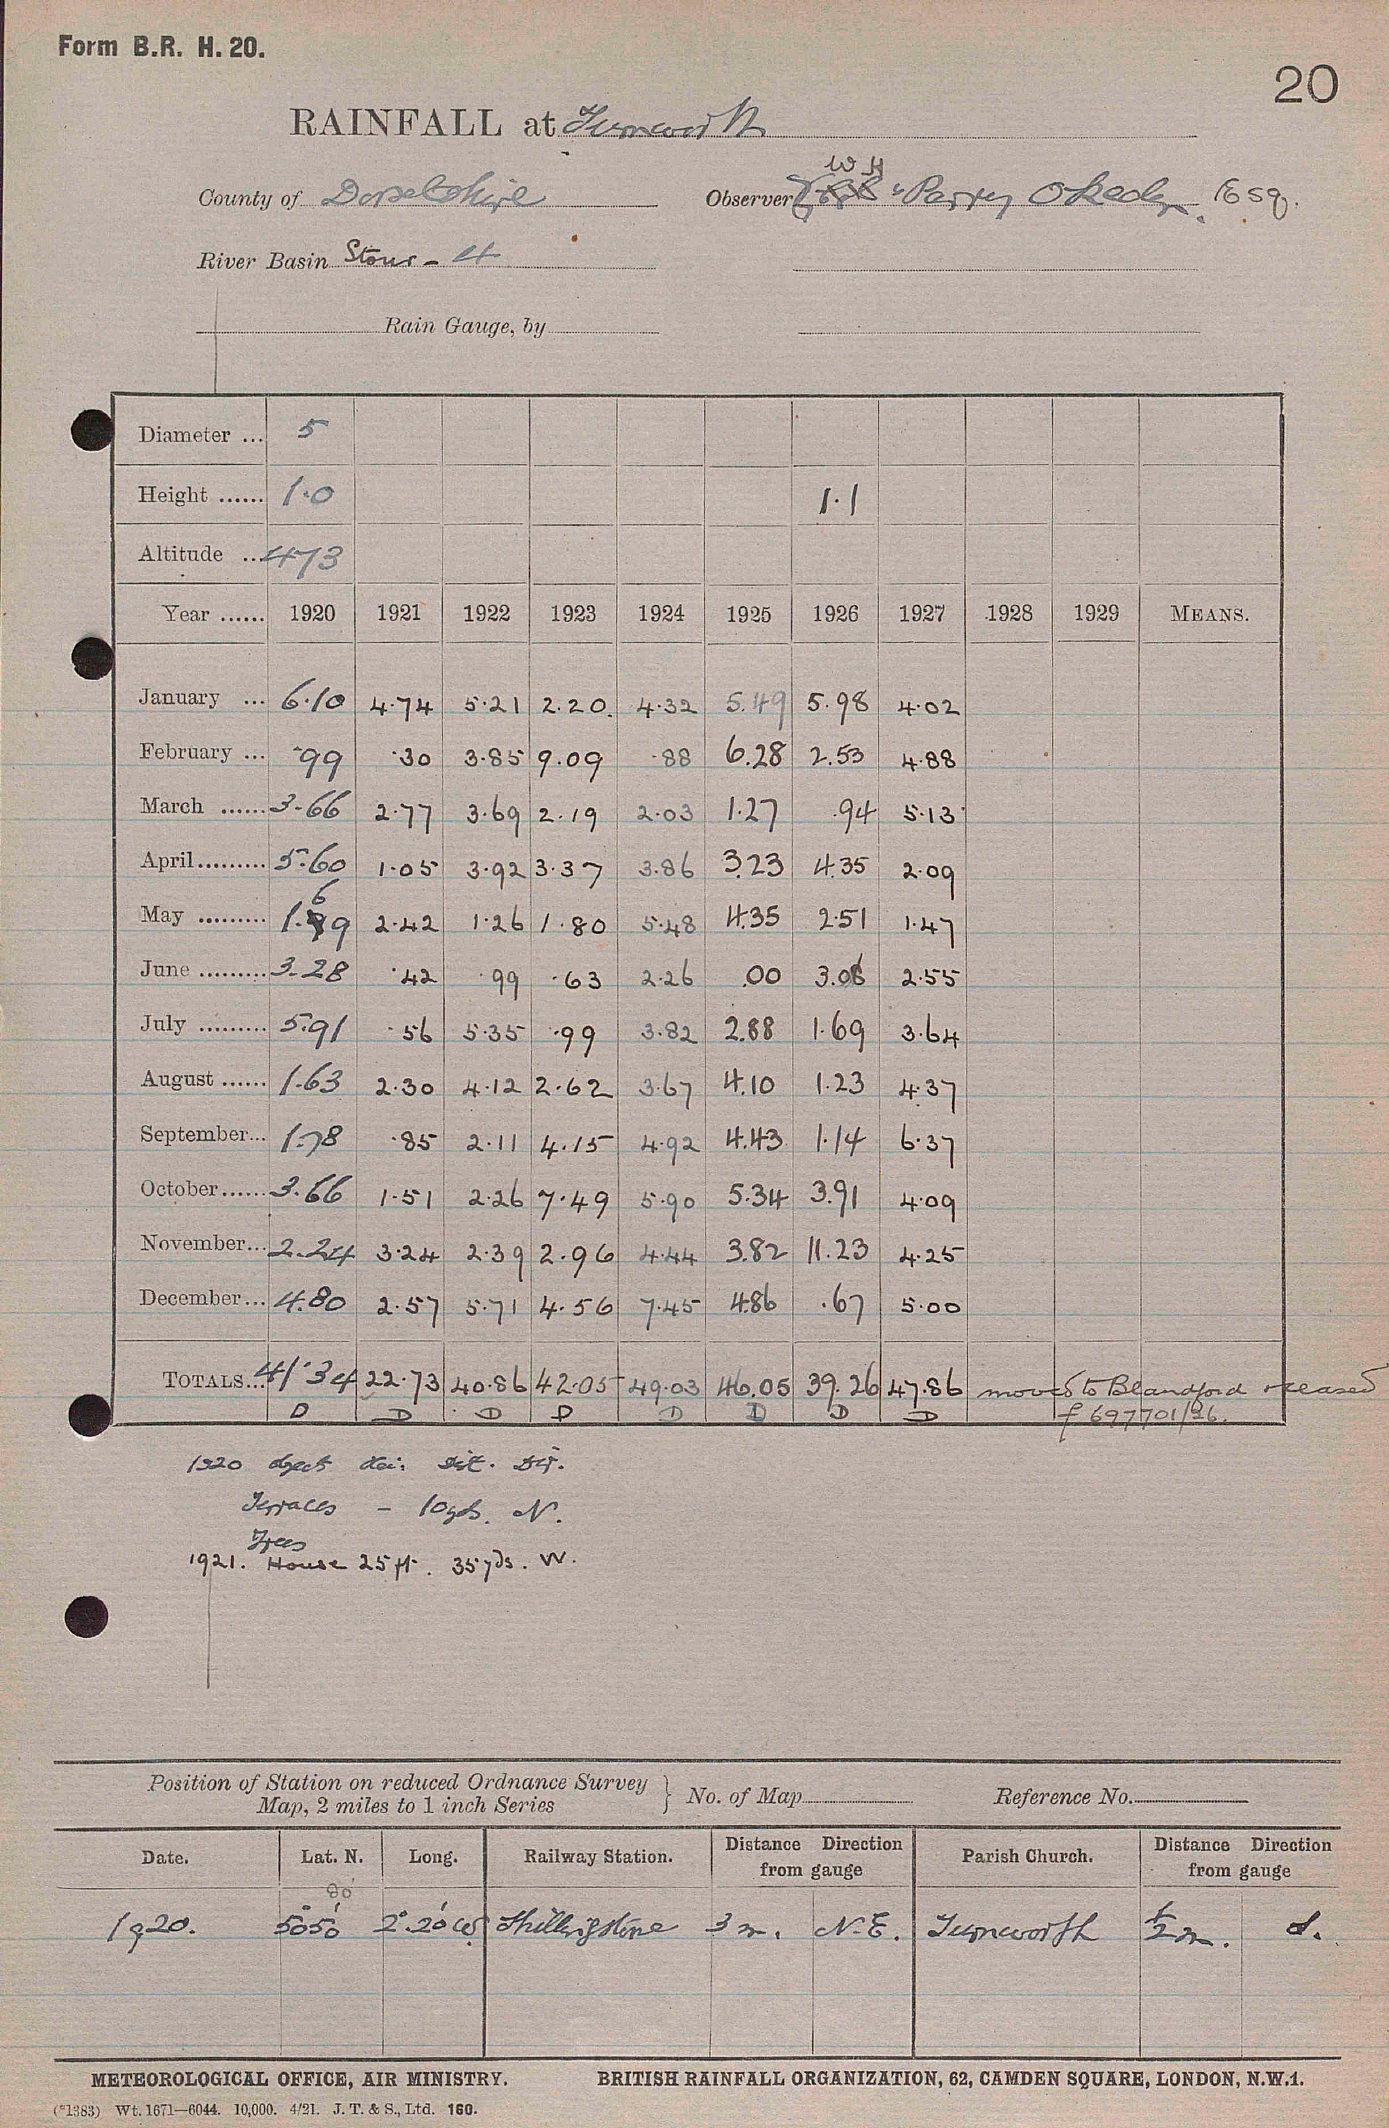 Form B.R. H. 20.
20
RAINFALL at Turnworth
County of Dorsetshire Observer W H Parry Okeden Esq.
River Basin Stour - 4
Rain Gauge, by
Diameter ... 5
Height ...... 1.0 1.1
Altitude ... 473
Year ...... 1920 1921 1922 1923 1924 1925 1926 1927 1928 1929 MEANS.
January ... 6.10 4.74 5.21 2.20. 4.32 5.49 5.98 4.02
February ... .99 .30 3.85 9.09 .88 6.28 2.53 4.88
March ...... 3.66 2.77 3.69 2.19 2.03 1.27 .94 5.13
April......... 5.60 1.05 3.92 3.37 3.86 3.23 4.35 2.09
May ......... 1.69 2.42 1.26 1.80 5.48 4.35 2.51 1.47
June ......... 3.28 .42 .99 .63 2.26 .00 3.08 2.55
July ......... 5.91 .56 5.35 .99 3.82 2.88 1.69 3.64
August ...... 1.63 2.30 4.12 2.62 3.67 4.10 1.23 4.37
September... 1.78 .85 2.11 4.15 4.92 4.43 1.14 6.37
October...... 3.66 1.51 2.26 7.49 5.90 5.34 3.91 4.09
November... 2.24 3.24 2.39 2.96 4.44 3.82 11.23 4.25
December... 4.80 2.57 5.71 4.56 7.45 4.86 .67 5.00
TOTALS... 41.34 22.73 40.86 42.05 49.03 46.05 39.26 47.86 moved to Blandford & ceased
D D D D D D D D f 697701/26.
1920 object Hei: Dist. Dir.
Terraces - 10yds. N.
Trees
1921. House 25 ft. 35 yds. W.
Position of Station on reduced Ordnance Survey Map, 2 miles to 1 inch Series } No. of Map Reference No.
Date. Lat. N. Long. Railway Station. Distance Direction from gauge Parish Church. Distance Direction from gauge
1920. 50° 50' 2° 20' W Shillingstone 3 m. N.E. Turnworth 1/2 m. S.
METEOROLOGICAL OFFICE, AIR MINISTRY. BRITISH RAINFALL ORGANIZATION, 62, CAMDEN SQUARE, LONDON, N.W.1.
(*1383) Wt. 1671—6044. 10,000. 4/21. J. T. & S., Ltd. 160.